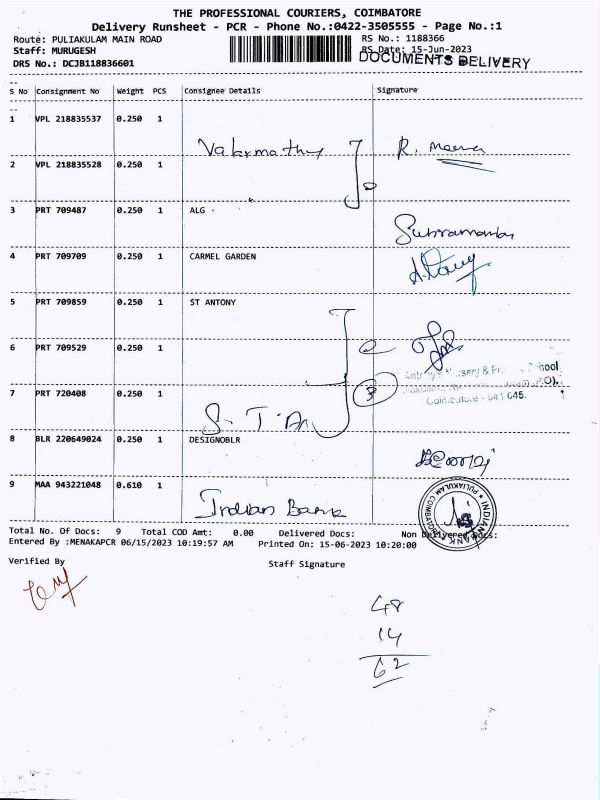 THE PROFESSIONAL COURIERS, COIMBATORE
Delivery Runsheet - PCR - Phone No.:0422-3505555 - Page No.:1
Route: PULIAKULAM MAIN ROAD RS No.: 1188366
Staff: MURUGESH RS Date: 15-Jun-2023
DRS No.: DCJB118836601 DOCUMENTS DELIVERY
S No Consignment No Weight PCS Consignee Details Signature
1 VPL 218835537 0.250 1
Valarmathy R. Meena
2 VPL 218835528 0.250 1
3 PRT 709487 0.250 1 ALG
4 PRT 709709 0.250 1 CARMEL GARDEN
5 PRT 709859 0.250 1 ST ANTONY
6 PRT 709529 0.250 1
School
7 PRT 720408 0.250 1 3
Coimbatore - 641 045.
8 BLR 220649024 0.250 1 DESIGNOBLR
9 MAA 943221048 0.610 1
Indian Bank
INDIAN BANK * PULIAKULAM COIMBATORE *
Total No. Of Docs: 9 Total COD Amt: 0.00 Delivered Docs: Non Delivered Docs:
Entered By :MENAKAPCR 06/15/2023 10:19:57 AM Printed On: 15-06-2023 10:20:00
Verified By Staff Signature
48
14
62